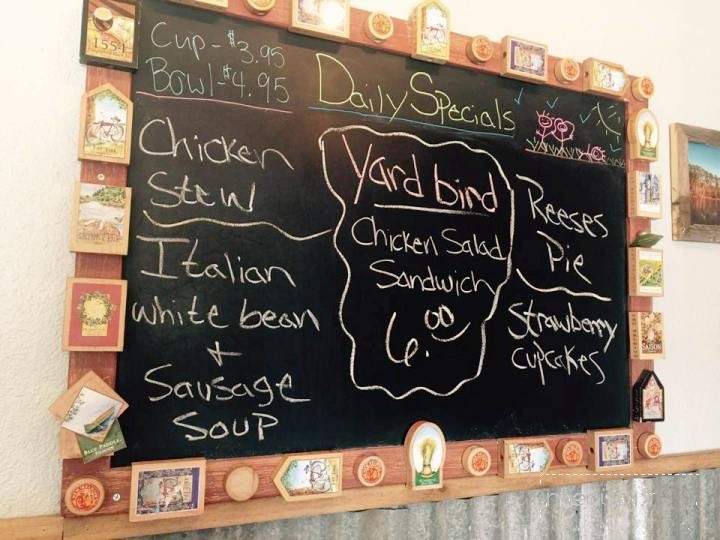 Cup - $3.95
Bowl - $4.95
Daily Specials
Chicken
Stew
Italian
white bean
+
Sausage
Soup
Yard bird
Chicken Salad
Sandwich
6.00
Reeses
Pie
Strawberry
cupcakes
1554
BLUE PADDLE
SAISON